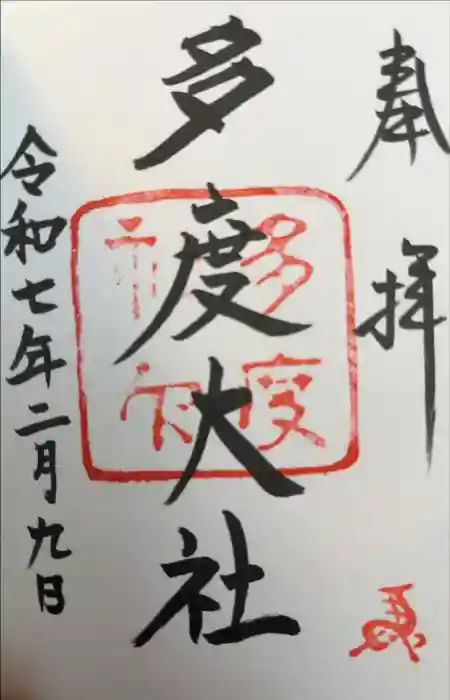 奉拝
多度大社
多度
神社
令和七年二月九日